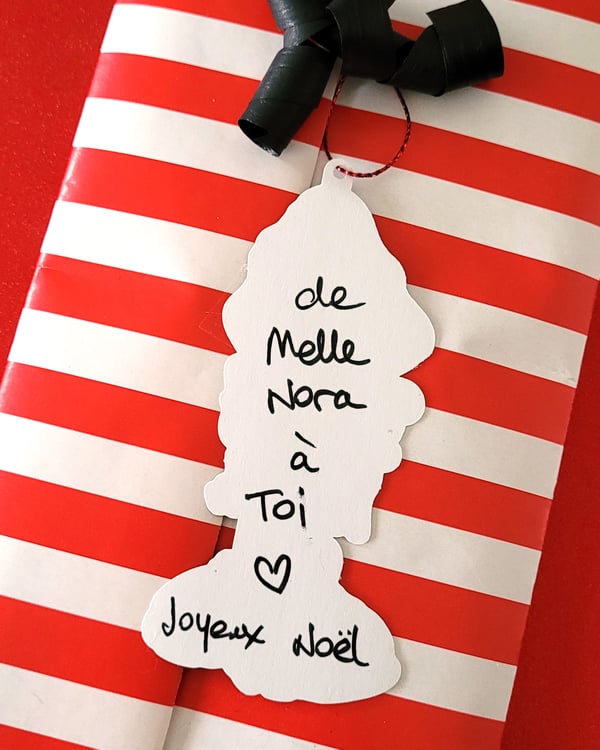 de
Melle
Nora
à
Toi
♡
Joyeux Noël